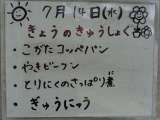 7月14日(水)
きょうのきゅうしょく
・こがたコッペパン
・やきビーフン
・とりにくのさっぱり煮
・ぎゅうにゅう